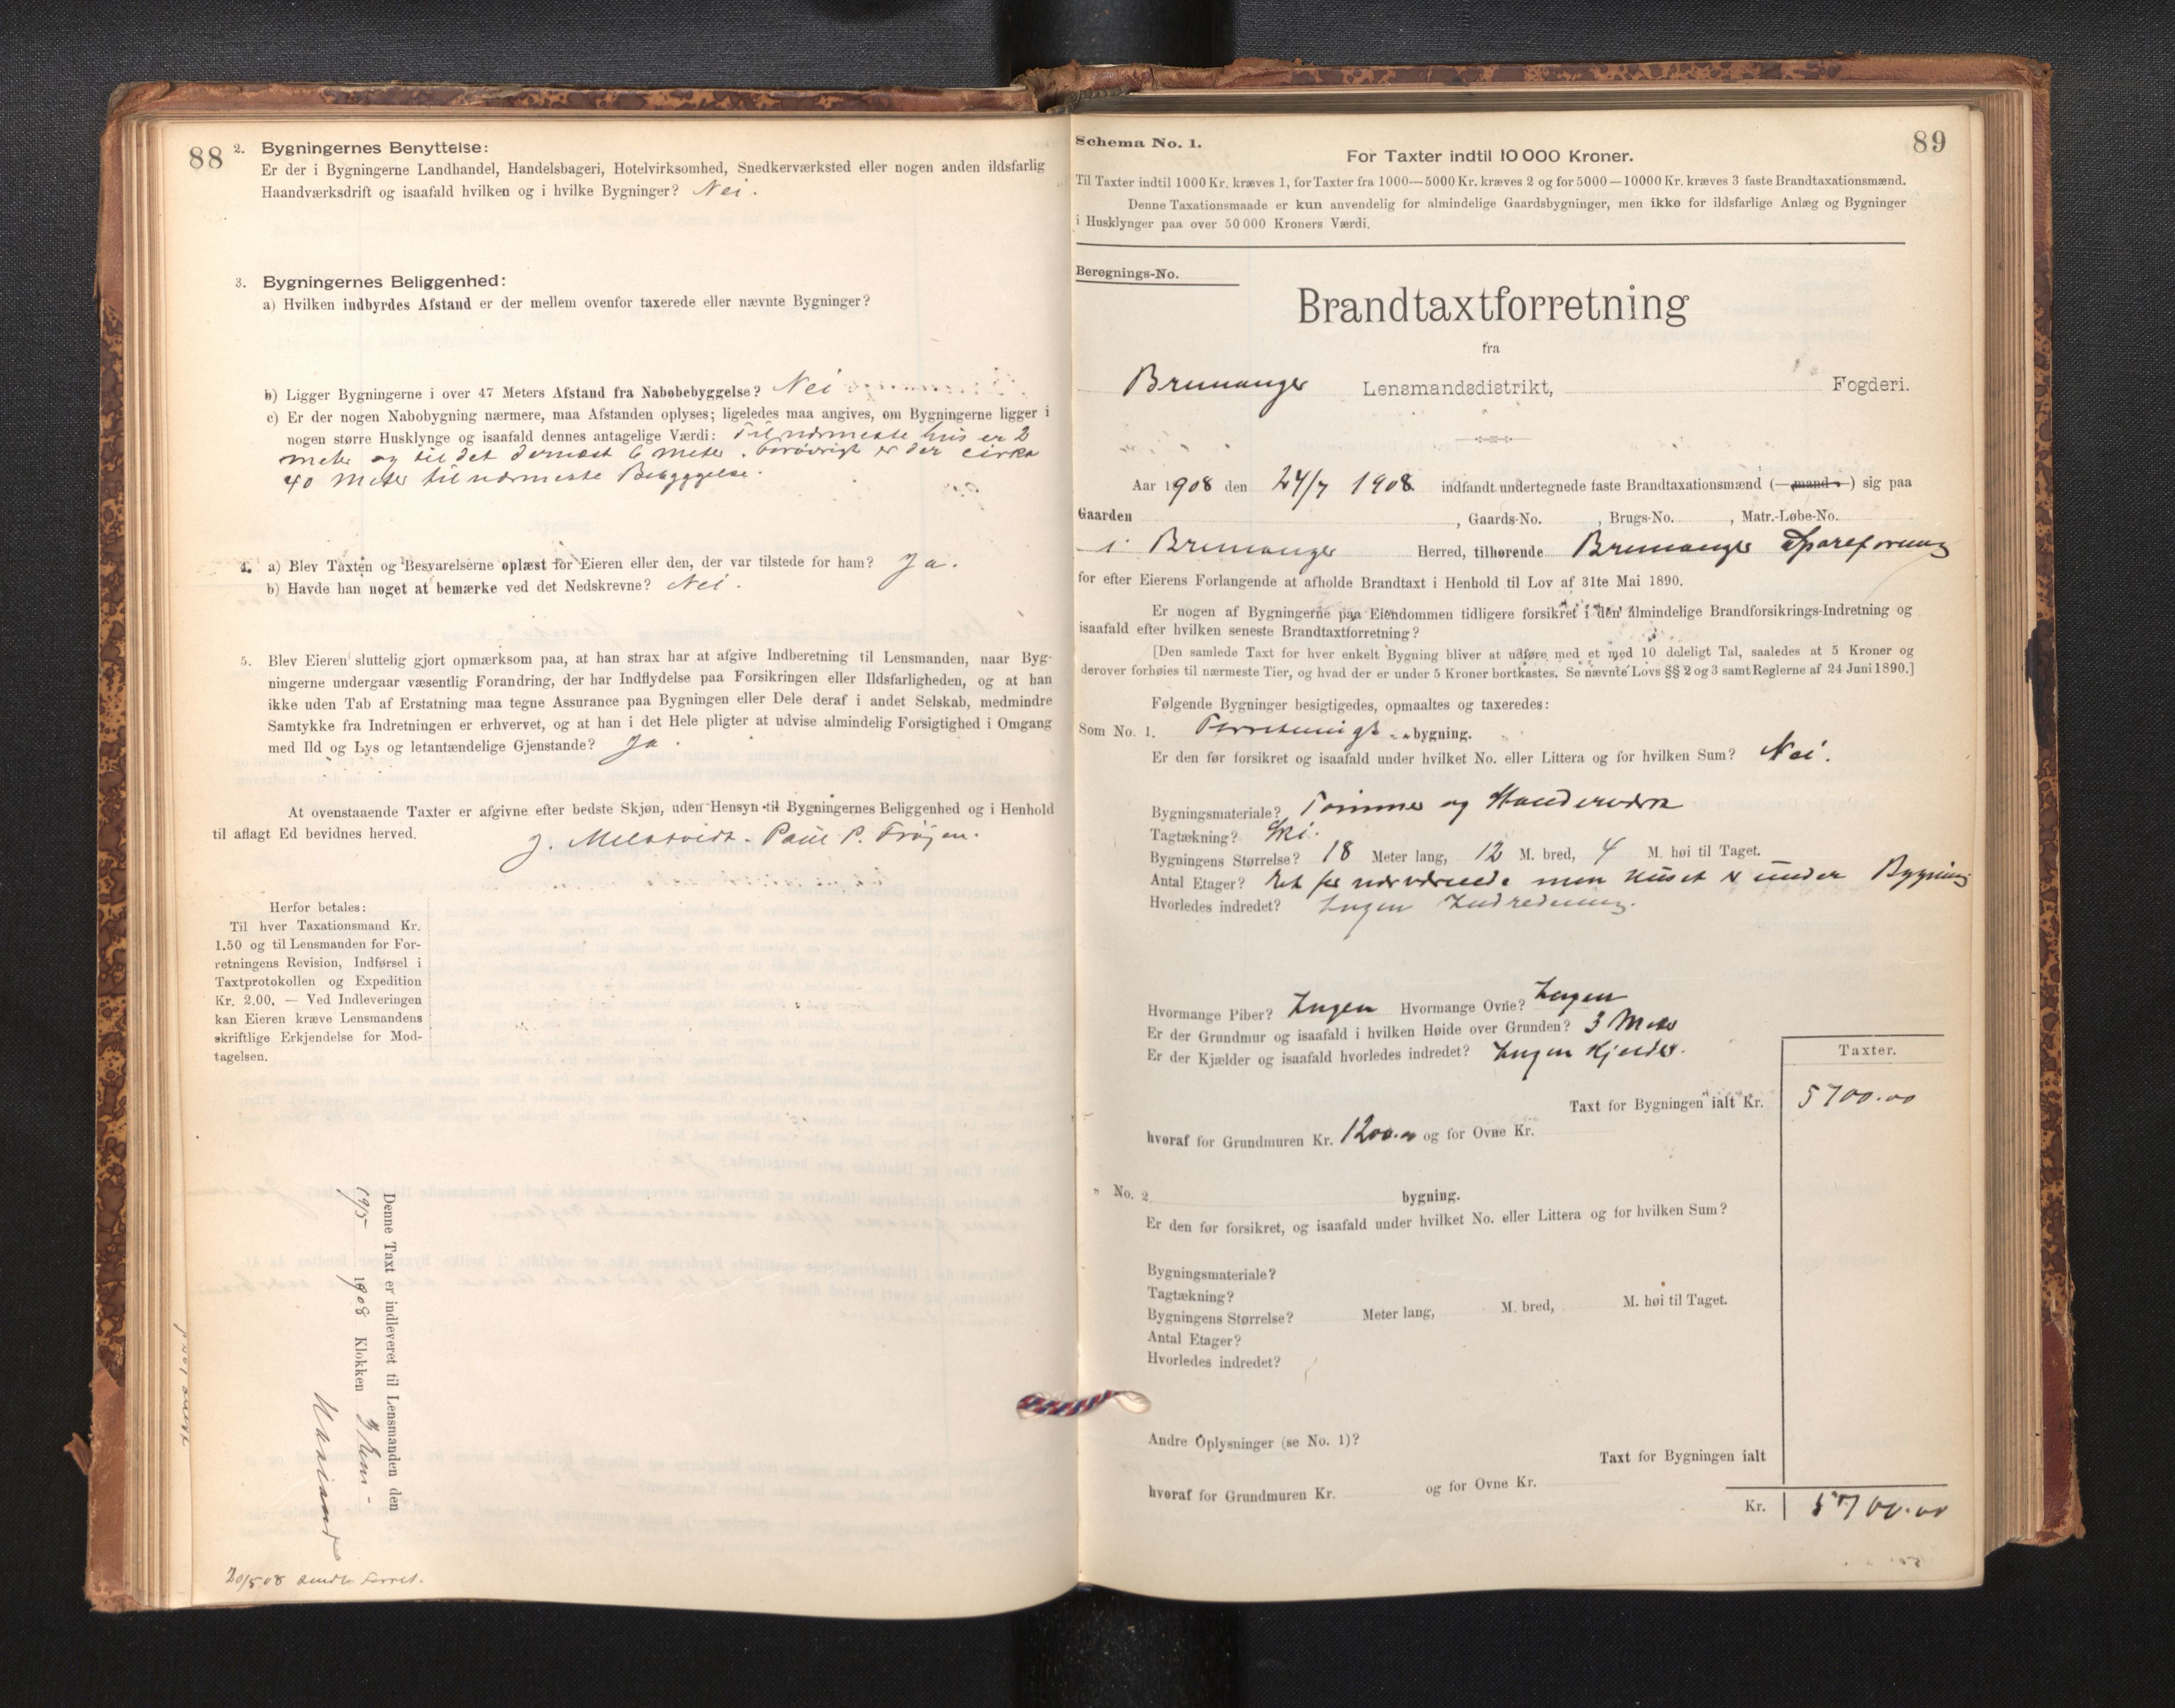 88
2. Bygningernes Benyttelse:
Er der i Bygningerne Landhandel, Handelsbageri, Hotelvirksomhed, Snedkerværksted eller nogen anden ildsfarlig
Haandværksdrift og isaafald hvilken og i hvilke Bygninger? Nei.
3. Bygningernes Beliggenhed:
a) Hvilken indbyrdes Afstand er der mellem ovenfor taxerede eller nævnte Bygninger?
b) Ligger Bygningerne i over 47 Meters Afstand fra Nabobebyggelse? Nei
c) Er der nogen Nabobygning nærmere, maa Afstanden oplyses; ligeledes maa angives, om Bygningerne ligger i
nogen større Husklynge og isaafald dennes antagelige Værdi: Til nærmeste hus er 2
meter og til det dernæst 6 meter. Forøvrigt er der cirka
40 Meter til nærmeste Bebyggelse.
4. a) Blev Taxten og Besvarelserne oplæst for Eieren eller den, der var tilstede for ham? Ja.
b) Havde han noget at bemærke ved det Nedskrevne? Nei.
5. Blev Eieren sluttelig gjort opmærksom paa, at han strax har at afgive Indberetning til Lensmanden, naar Byg-
ningerne undergaar væsentlig Forandring, der har Indflydelse paa Forsikringen eller Ildsfarligheden, og at han
ikke uden Tab af Erstatning maa tegne Assurance paa Bygningen eller Dele deraf i andet Selskab, medmindre
Samtykke fra Indretningen er erhvervet, og at han i det Hele pligter at udvise almindelig Forsigtighed i Omgang
med Ild og Lys og letantændelige Gjenstande? Ja.
At ovenstaaende Taxter er afgivne efter bedste Skjøn, uden Hensyn til Bygningernes Beliggenhed og i Henhold
til aflagt Ed bevidnes herved. J. Paul P. Frøyen.
Herfor betales:
Til hver Taxationsmand Kr.
1.50 og til Lensmanden for For-
retningens Revision, Indførsel i
Taxtprotokollen og Expedition
Kr. 2.00. — Ved Indleveringen
kan Eieren kræve Lensmandens
skriftlige Erkjendelse for Mod-
tagelsen.
Denne Taxt er indleveret til Lensmanden den
19/5 1908 Klokken 3
20/5 08 sendt Forret.
89
Schema No. 1.
For Taxter indtil 10 000 Kroner.
Til Taxter indtil 1000 Kr. kræves 1, for Taxter fra 1000—5000 Kr. kræves 2 og for 5000—10000 Kr. kræves 3 faste Brandtaxationsmænd.
Denne Taxationsmaade er kun anvendelig for almindelige Gaardsbygninger, men ikke for ildsfarlige Anlæg og Bygninger
i Husklynger paa over 50 000 Kroners Værdi.
Beregnings-No.
Brandtaxtforretning
fra
Bremanger Lensmandsdistrikt, Fogderi.
Aar 1908 den 24/7 1908 indfandt undertegnede faste Brandtaxationsmænd (—mand—) sig paa
Gaarden , Gaards-No. , Brugs-No. , Matr.-Løbe-No.
i Bremanger Herred, tilhørende Bremanger Spareforening
for efter Eierens Forlangende at afholde Brandtaxt i Henhold til Lov af 31te Mai 1890.
Er nogen af Bygningerne paa Eiendommen tidligere forsikret i den almindelige Brandforsikrings-Indretning og
isaafald efter hvilken seneste Brandtaxtforretning?
[Den samlede Taxt for hver enkelt Bygning bliver at udføre med et med 10 deleligt Tal, saaledes at 5 Kroner og
derover forhøies til nærmeste Tier, og hvad der er under 5 Kroner bortkastes. Se nævnte Lovs §§ 2 og 3 samt Reglerne af 24 Juni 1890.]
Følgende Bygninger besigtigedes, opmaaltes og taxeredes:
Som No. 1. Forretnings bygning.
Er den før forsikret og isaafald under hvilket No. eller Littera og for hvilken Sum? Nei.
Bygningsmateriale? Tømmer og
Tagtækning? Ski.
Bygningens Størrelse? 18 Meter lang, 12 M. bred, 4 M. høi til Taget.
Antal Etager? Et for nærværende men Huset er under Bygning
Hvorledes indredet? Ingen Indredning.
Hvormange Piber? Ingen Hvormange Ovne? Ingen
Er der Grundmur og isaafald i hvilken Høide over Grunden? 3 Meter
Er der Kjælder og isaafald hvorledes indredet? Ingen Kjelder.
Taxter.
Taxt for Bygningen ialt Kr. 5700.00
hvoraf for Grundmuren Kr. 1200.00 og for Ovne Kr.
" No. 2 bygning.
Er den før forsikret, og isaafald under hvilket No. eller Littera og for hvilken Sum?
Bygningsmateriale?
Tagtækning?
Bygningens Størrelse? Meter lang, M. bred, M. høi til Taget.
Antal Etager?
Hvorledes indredet?
Andre Oplysninger (se No. 1)?
Taxt for Bygningen ialt
hvoraf for Grundmuren Kr. og for Ovne Kr.
Kr. 5700.00